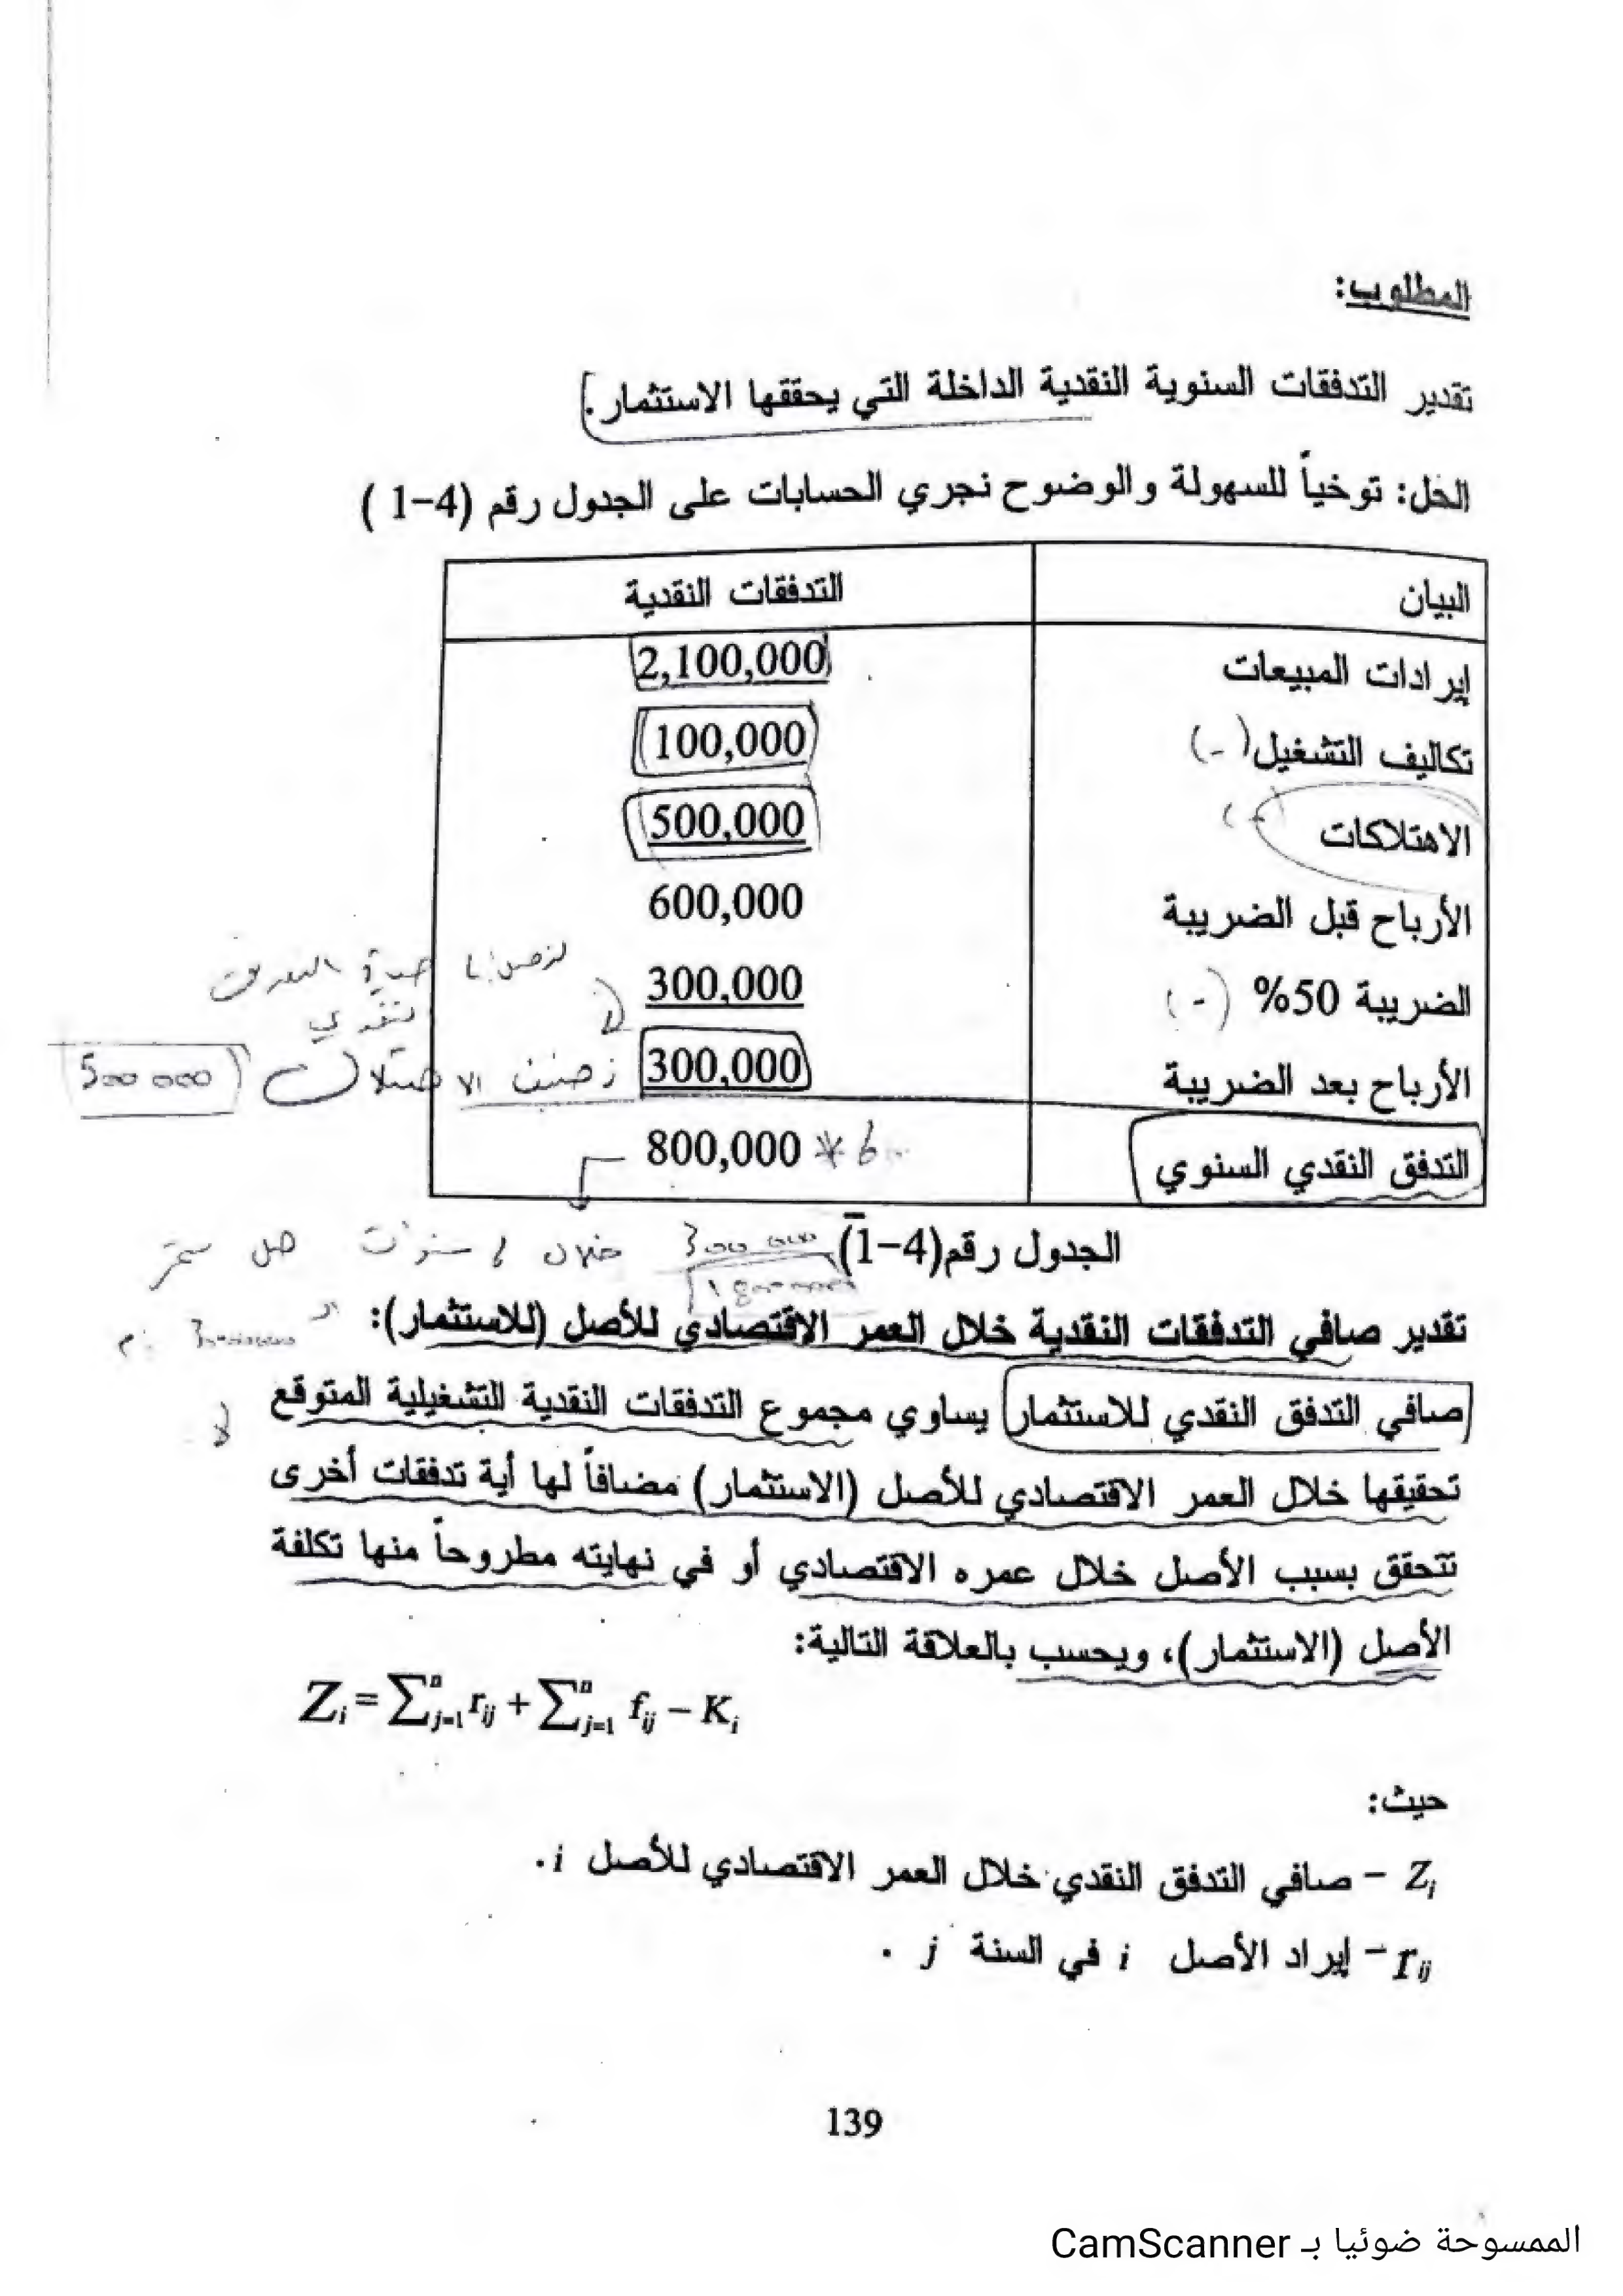 المطلوب:
تقدير التدفقات السنوية النقدية الداخلة التي يحققها الاستثمار.
الحل: توخياً للسهولة والوضوح نجري الحسابات على الجدول رقم (4-1)
البيان التدفقات النقدية
إيرادات المبيعات 2,100,000
تكاليف التشغيل (-) 100,000
الاهتلاكات (-) 500,000
الأرباح قبل الضريبة 600,000
الضريبة 50% (-) 300,000
الأرباح بعد الضريبة 300,000
500 000
التدفق النقدي السنوي 800,000 * 6
الجدول رقم(4-1)
300 000 خلال 6 سنوات هل
تقدير صافي التدفقات النقدية خلال العمر الاقتصادي للأصل (للاستثمار):
صافي التدفق النقدي للاستثمار يساوي مجموع التدفقات النقدية التشغيلية المتوقع
لا
تحقيقها خلال العمر الاقتصادي للأصل (الاستثمار) مضافاً لها أية تدفقات أخرى
تتحقق بسبب الأصل خلال عمره الاقتصادي أو في نهايته مطروحاً منها تكلفة
الأصل (الاستثمار)، ويحسب بالعلاقة التالية:
Zᵢ = ∑ⁿⱼ₌₁ rᵢⱼ + ∑ⁿⱼ₌₁ fᵢⱼ – Kᵢ
حيث:
Zᵢ – صافي التدفق النقدي خلال العمر الاقتصادي للأصل i.
rᵢⱼ – إيراد الأصل i في السنة j .
139
الممسوحة ضوئيا بـ CamScanner